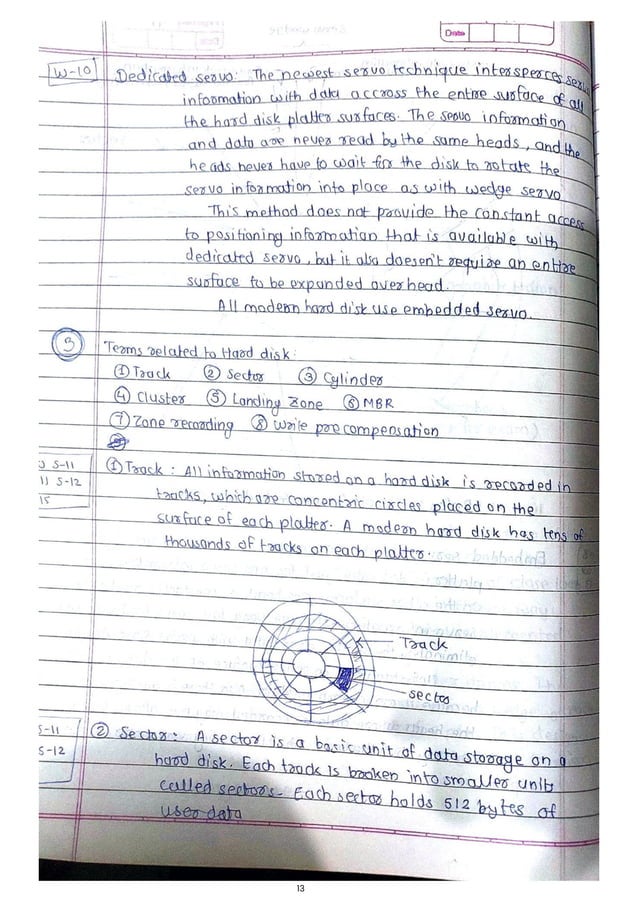 Date
W-10
Dedicated servo: The newest servo technique intersperces servo
information with data accross the entire surface of all
the hard disk platter surfaces. The servo information
and data are never read by the same heads, and the
heads never have to wait for the disk to rotate the
servo information into place as with wedge servo
This method does not provide the constant access
to positioning information that is available with
dedicated servo, but it also doesen't require an entire
surface to be expunded overhead.
All modern hard disk use embedded servo.
3
Terms related to Hard disk:
① Track ② Sector ③ Cylinder
④ Cluster ⑤ Landing Zone ⑥ MBR
⑦ Zone recording ⑧ Write precompensation
S-11
S-12
15
① Track: All information stored on a hard disk is recorded in
tracks, which are concentric circles placed on the
surface of each platter. A modern hard disk has tens of
thousands of tracks on each platter.
Track
sector
S-11
S-12
② Sector: A sector is a basic unit of data storage on a
hard disk. Each track is broken into smaller units
called sectors. Each sector holds 512 bytes of
user data
13